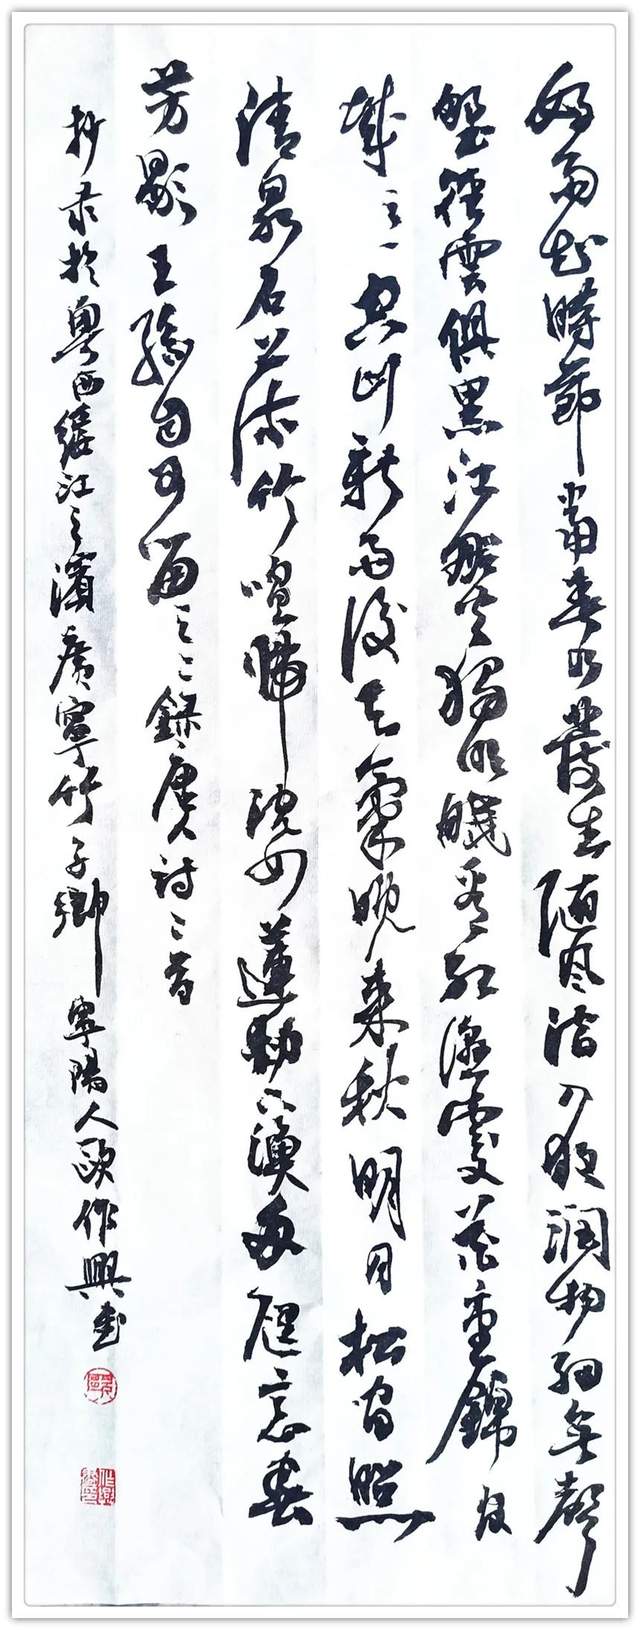 好雨知時節當春乃發生隨風潛入夜潤物細無聲
野徑雲俱黑江船火獨明曉看紅濕處花重錦官
城之一空山新雨後天氣晚來秋明月松間照
清泉石上流竹喧歸浣女蓮動下漁舟隨意春
芳歇王孫自可留之二錄唐詩二首
抄录於粤西綏江之濱廣寧竹子鄉寧陽人歐作興書